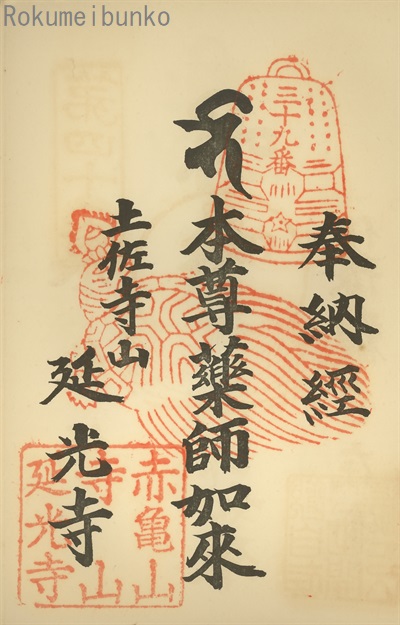 Rokumeibunko
三十九番
奉納經
本尊藥師如來
土佐寺山
延光寺
赤亀山
寺山
延光寺